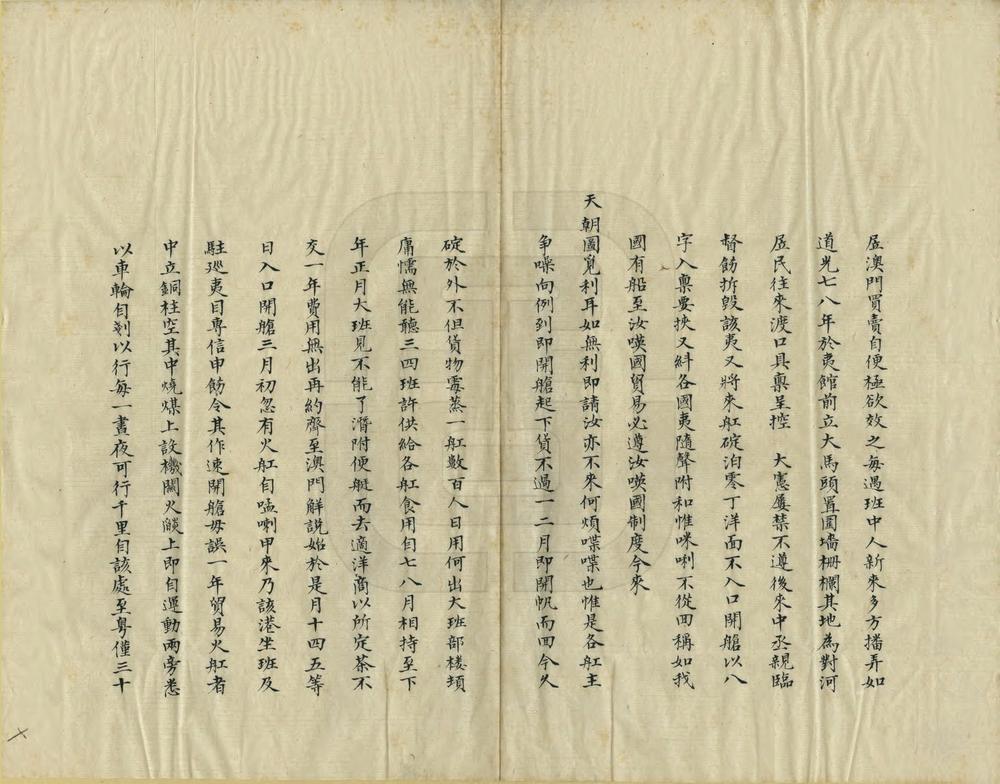 居澳門買賣自便極欲效之每遇班中人新來多方播弄如
道光七八年於夷館前立大馬頭置圍墻柵欄其地為對河
居民往來渡口具稟呈控 大憲屢禁不遵後來中丞親臨
督飭拆毀該夷又將來舡碇泊零丁洋面不入口開艙以八
字入稟要挾又糾各國夷隨聲附和惟咪唎不從回稱如我
國有船至汝㗲國貿易必遵汝㗲國制度今來
天朝圖覓利耳如無利即請汝亦不來何煩喋喋也惟是各舡主
争噪向例到即開艙起下貨不過一二月即開帆而回今久
碇於外不但貨物霉蒸一舡數百人日用何出大班部楼頓
庸懦無能聽三四班許供給各舡食用自七八月相持至下
年正月大班見不能了潛附便艇而去適洋商以所定茶不
交一年費用無出再約齊至澳門解說始於是月十四五等
日入口開艙三月初忽有火舡自嗑喇甲來乃該港坐班及
駐廵夷目專信申飭令其作速開艙毋誤一年貿易火舡者
中立銅柱空其中燒煤上設機關火燄上即自運動兩旁悉
以車輪自刺以行每一晝夜可行千里自該處至粵僅三十